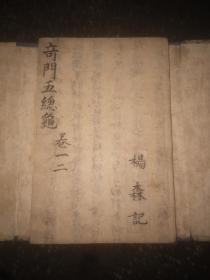 奇門五總龜
卷一二
楊森記